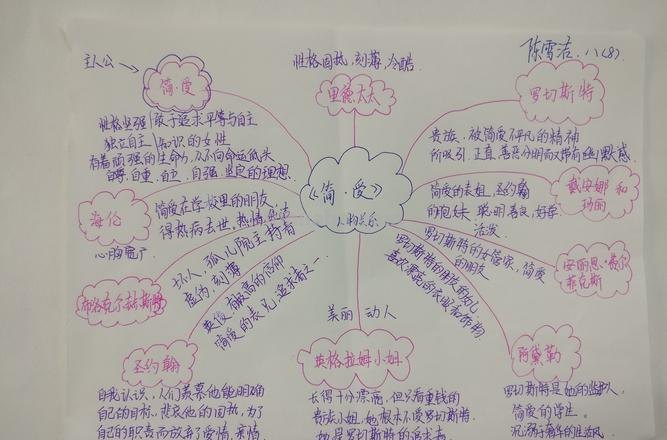 陈雪洁.八(8).
主人公
简·爱
性格固执,刻薄,冷酷.
里德太太
罗切斯特
性格坚强
独立自主
敢于追求平等与自主
知识的女性
有着顽强的生命力,从不向命运低头
自尊、自重、自立、自强、坚定的理想.
贵族.被简爱不平凡的精神
所吸引.正直.善恶分明而又带有幽默感
《简·爱》
人物关系
海伦
心胸宽广
简爱在学校里的朋友,
得热病去世.热情.纯洁
简爱的表姐.圣约翰
的胞妹 聪明善良,好学
活泼
戴安娜和
玛丽
布洛克尔赫斯特
坏人,孤儿院主持者
虚伪.刻薄
罗切斯特的女管家,简爱
的朋友
安丽思·费尔
菲克斯
圣约翰
英俊有极高的信仰
简爱的表兄,追求者之一
美丽 动人
英格拉姆小姐
罗切斯特的朋友的女儿
喜欢漂亮的衣服和饰物
阿黛勒
自我认识,人们羡慕他能明确
自己的目标.悲哀他的固执,为了
自己的职责而放弃了爱情,亲情
长得十分漂亮,但只看重钱的
贵族小姐,她根本不爱罗切斯特.
她是罗切斯特的追求者
罗切斯特是她的监护人,
简爱的学生.
沉溺于奢华的生活风